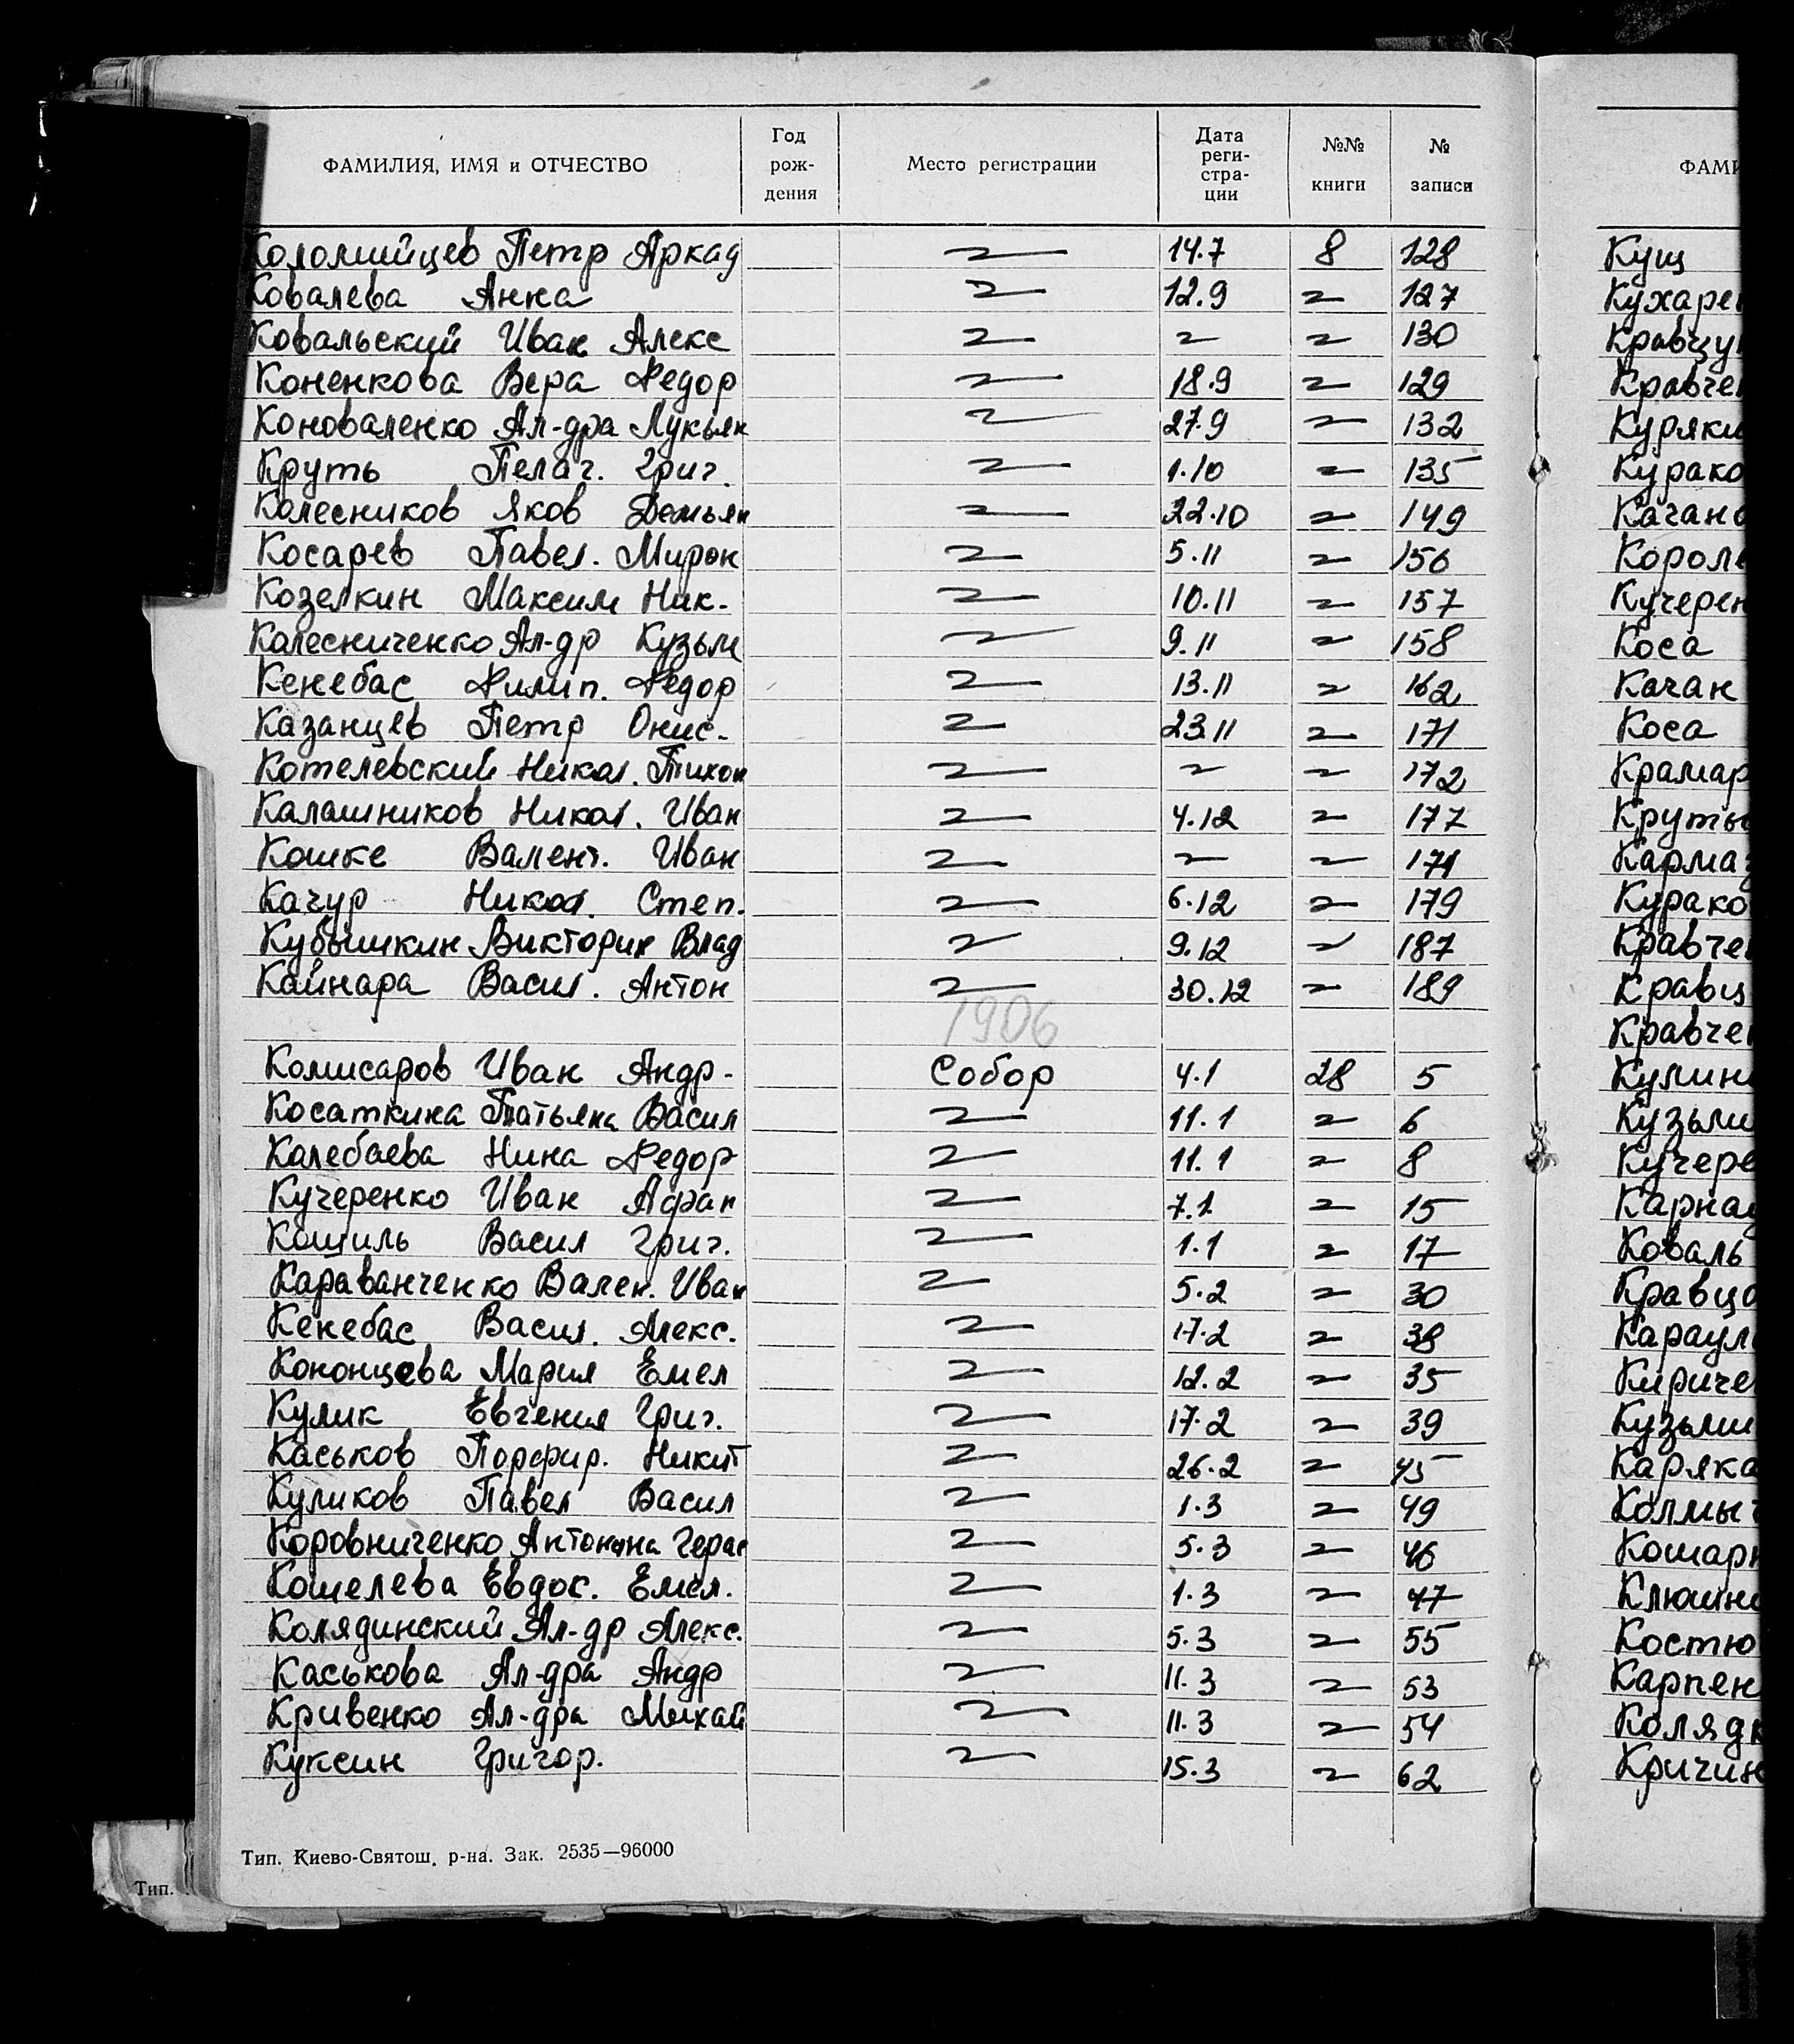 ФАМИЛИЯ, ИМЯ и ОТЧЕСТВО Год рождения Место регистрации Дата реги-стра-ции №№ книги № записи ФАМИ
Коломийцев Петр Аркад 〃 14.7 8 128 Кущ
Ковалева Анна 〃 12.9 〃 127 Кухаре
Ковальский Иван Алекс 〃 〃 〃 130 Кравцу
Коненкова Вера Федор 〃 18.9 〃 129 Кравче
Коноваленко Ал-дра Лукьян 〃 27.9 〃 132 Куряки
Круть Пелаг. Григ. 〃 1.10 〃 135 Курако
Колесников Яков Демьян 〃 22.10 〃 149 Качано
Косарев Павел. Мирон 〃 5.11 〃 156 Короле
Козелкин Максим Ник. 〃 10.11 〃 157 Кучерен
Калесниченко Ал-др Кузьм 〃 9.11 〃 158 Коса
Кенебас Филип. Федор 〃 13.11 〃 162 Качан
Казанцев Петр Онис. 〃 23.11 〃 171 Коса
Котелевский Никол. Тихон 〃 〃 〃 172 Крамар
Калашников Никол. Иван 〃 4.12 〃 177 Круты
Кошке Валент. Иван 〃 〃 〃 171 Карма
Качур Никол. Степ. 〃 6.12 〃 179 Курако
Кубышкин Викторин Влад 〃 9.12 〃 187 Кравче
Кайнара Васил. Антон 〃 30.12 〃 189 Кравц
1906 Кравче
Комисаров Иван Андр. Собор 4.1 28 5 Кулин
Косаткина Татьяна Васил 〃 11.1 〃 6 Кузьми
Калебаева Нина Федор 〃 11.1 〃 8 Кучере
Кучеренко Иван Афан 〃 7.1 〃 15 Карна
Кошиль Васил Григ. 〃 1.1 〃 17 Коваль
Караванченко Вален. Иван 〃 5.2 〃 30 Кравцо
Кенебас Васил. Алекс. 〃 17.2 〃 38 Караул
Кононцева Мария Емел 〃 12.2 〃 35 Кириче
Кулик Евгения Григ. 〃 17.2 〃 39 Кузьми
Каськов Порфир. Никит 〃 26.2 〃 45 Каряка
Куликов Павел Васил 〃 1.3 〃 49 Колмы
Коровниченко Антонина Герас 〃 5.3 〃 46 Кошар
Кошелева Евдок. Емел. 〃 1.3 〃 47 Клюшн
Колядинский Ал-др Алекс. 〃 5.3 〃 55 Костю
Каськова Ал-дра Андр 〃 11.3 〃 53 Карпен
Кривенко Ал-дра Михай 〃 11.3 〃 54 Коляд
Куксин Григор. 〃 15.3 〃 62 Кричин
Тип. Киево-Святош. р-на. Зак. 2535—96000
Тип.